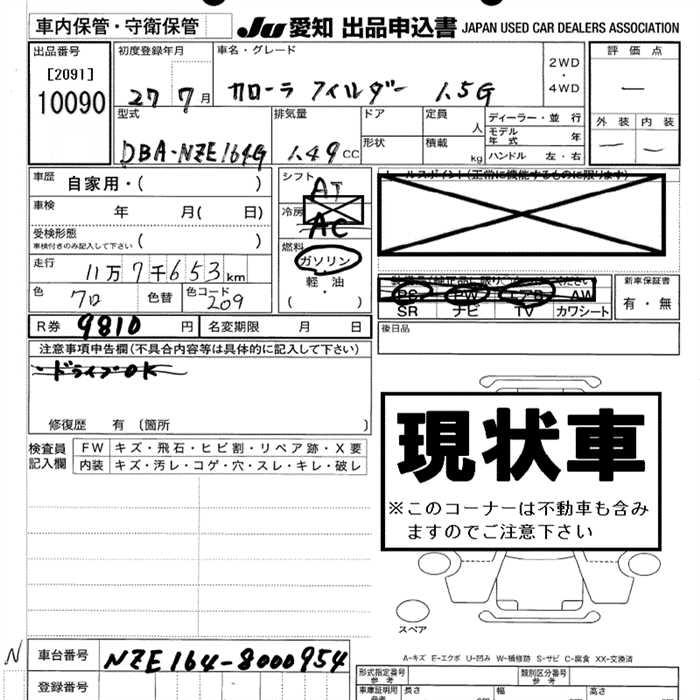 車内保管・守衛保管 JU 愛知 出品申込書 JAPAN USED CAR DEALERS ASSOCIATION
出品番号 初度登録年月 車名・グレード 評価点
[2091]
10090
27 7月 カローラ フィルダー 1.5G 2WD・4WD —
型式 排気量 ドア 定員 人 ディーラー・並行 外装 内装
DBA-NZE164G 1.49CC 形状 積載 kg モデル年式 年 — —
ハンドル 左・右
車歴 自家用・( ) シフト AT セールスポイント(正常に機能するものに限ります)
車検 年 月( 日) 冷房 AC
受検形態 ( )
車検付きのみ記入して下さい
燃料 ガソリン
軽油
( ・ )
走行 11万7千653km
色 クロ 色替 色コード 209
PS PW エアB AW 新車保証書
SR ナビ TV カワシート 有・無
R券 9810円 名変期限 月 日 後日品
注意事項申告欄(不具合内容等は具体的に記入して下さい)
・ドライブOK
修復歴 有 〔箇所 〕
現状車
※このコーナーは不動車も含み
ますのでご注意下さい
検査員記入欄 FW キズ・飛石・ヒビ割・リペア跡・X要
内装 キズ・汚レ・コゲ・穴・スレ・キレ・破レ
スペア
A-キズ E-エクボ U-凹み W-補修跡 S-サビ C-腐食 XX-交換済
N 車台番号 NZE164-8000954 形式指定番号 参考 類別区分番号 参考
登録番号 車庫証明用 参考 長さ 幅 高さ